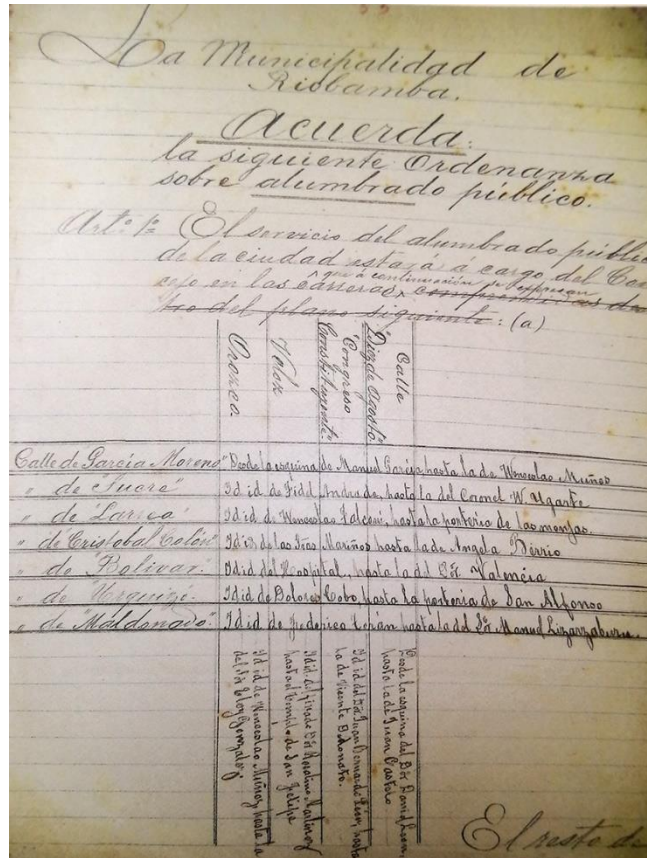 La Municipalidad de
Riobamba.
Acuerda:
la siguiente Ordenanza
sobre alumbrado público.
Art.º 1º El servicio del alumbrado públic
de la ciudad estará á cargo del Con
cejo en las carreras que á continuación se expresan
tro del plano siguiente: (a)
Calle
"Diez de Agosto"
"Congreso
Constituyente"
Veloz
Orozco.
Calle de García Moreno" Desde la esquina de Manuel García, hasta la de Wenceslao Muñoz
" de "Suares" Id id de Fidel Andrade, hasta la del Coronel W. Ugarte
" de "Larrea" Id id de Wenceslao Falconí, hasta la portería de las monjas.
" de "Cristobal Colón" Id id de las Sras Mariños hasta la de Angela Berrio
" de "Bolivar" Id id del Hospital, hasta la del Dr. Valencia
" de "Urquizo" Id id de Dolores Cobo, hasta la portería de San Alfonso
" de "Maldonado" Id id de Federico Terán hasta la del Sr. Manuel Lizarzaburu.
Desde la esquina del Dr. David Leon,
hasta la de Juan Castelo
Id id del Dr. Juan Bernardo León, hasta
la de Vicente B. Donoso.
Id id del finado Dr. Martinez
hasta el templo de San Felipe
Id id de Wenceslao Muñoz, hasta la
del Sr. Eloy Gonzalez
El resto de